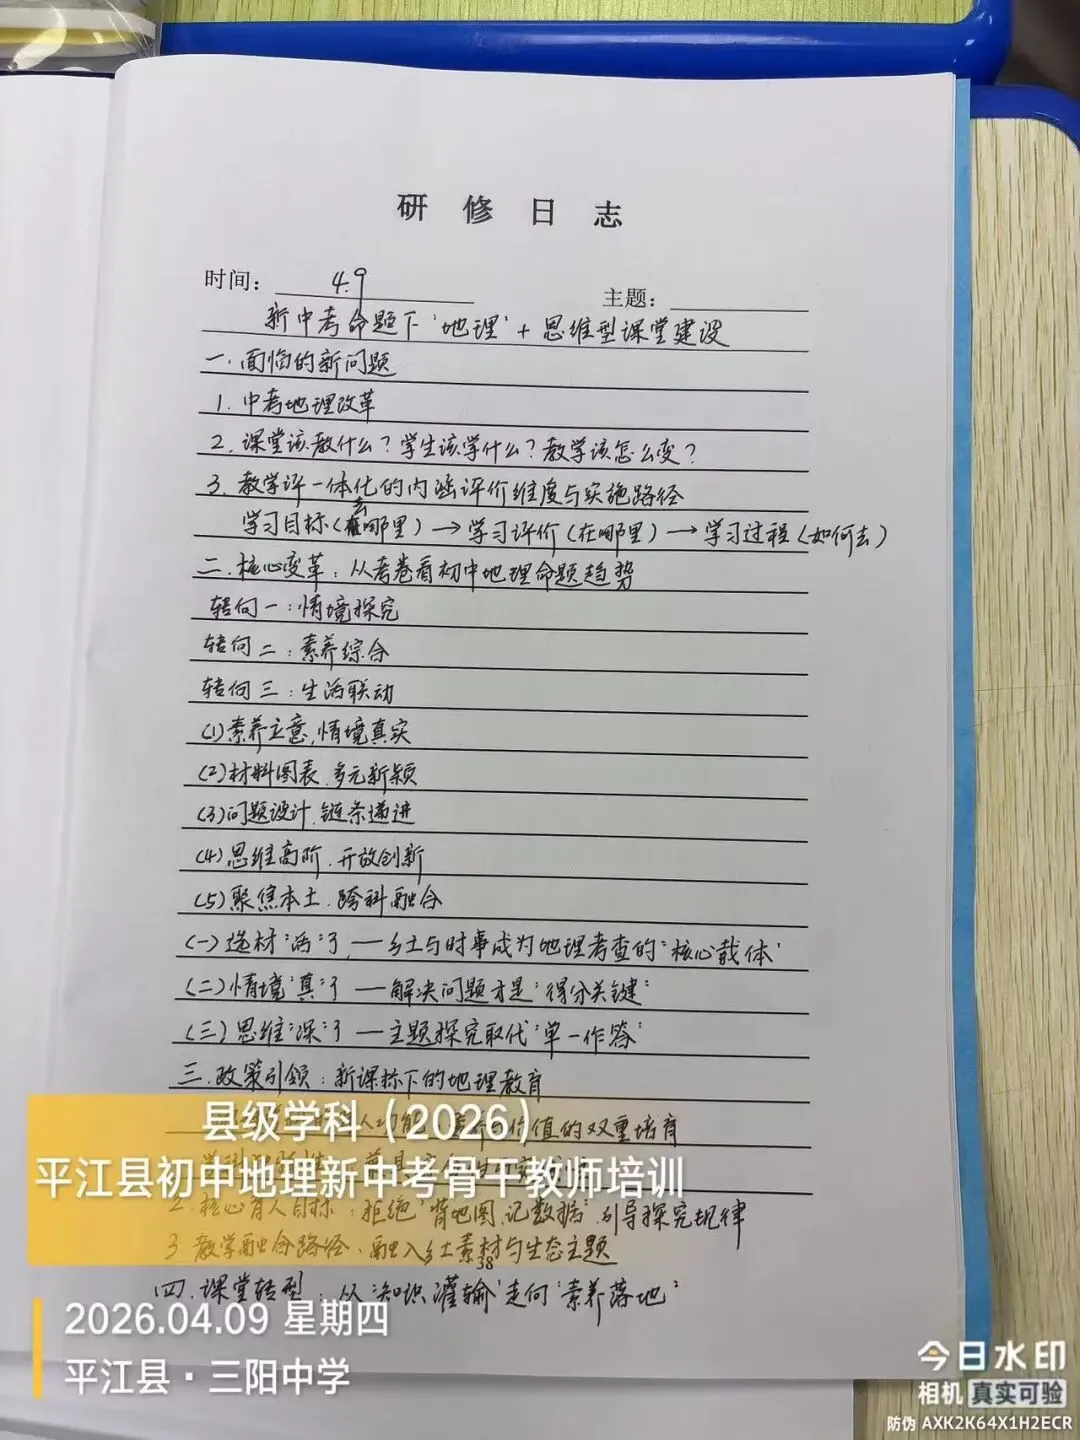 研修日志
时间：4.9
主题：
新中考命题下“地理”+思维型课堂建设
一.面临的新问题
1.中考地理改革
2.课堂该教什么？学生该学什么？教学该怎么变？
3.教学评一体化的内涵评价维度与实施路径
学习目标（去哪里）→学习评价（在哪里）→学习过程（如何去）
二.核心变革：从考卷看初中地理命题趋势
转向一：情境探究
转向二：素养综合
转向三：生活联动
(1)素养立意,情境真实
(2)材料图表.多元新颖
(3)问题设计.链条递进
(4)思维高阶.开放创新
(5)聚焦本土.跨科融合
(一)选材“活”了—乡土与时事成为地理考查的“核心载体”
(二)情境“真”了—解决问题才是“得分关键”
(三)思维“深”了—主题探究取代“单一作答”
三.政策引领：新课标下的地理教育
价值的双重培育
2.核心育人目标：拒绝“背地图,记数据”.引导探究规律
3 教学融合路径、融入乡土素材与生态主题
38
四.课堂转型：从“知识灌输”走向“素养落地”
县级学科（2026）
平江县初中地理新中考骨干教师培训
2026.04.09 星期四
平江县·三阳中学
今日水印
相机 真实可验
防伪 AXK2K64X1H2ECR